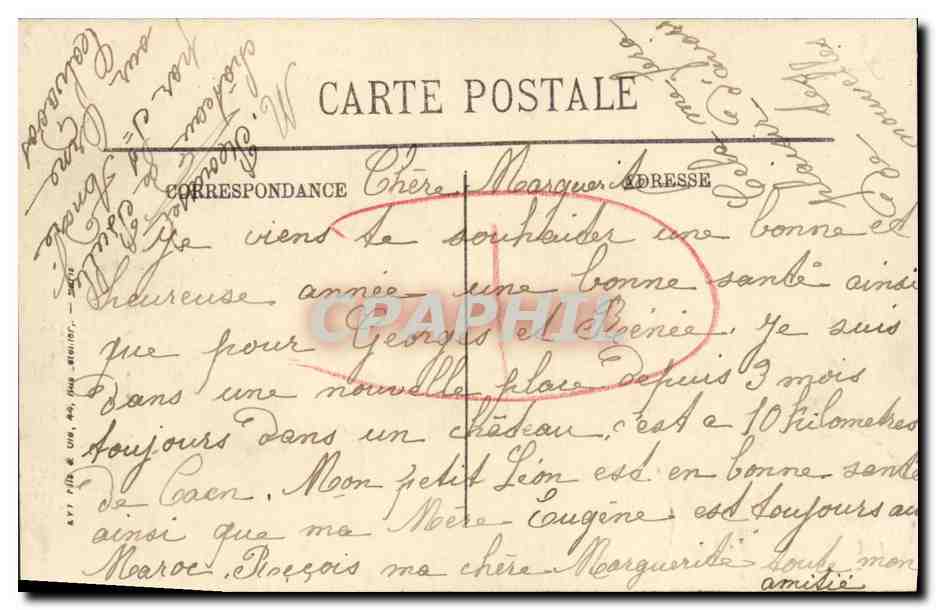 CARTE POSTALE
CORRESPONDANCE
ADRESSE
Chère Marguerite
Je viens te souhaiter une bonne et
heureuse année une bonne santé ainsi
que pour Georges et Irénée. Je suis
dans une nouvelle place depuis 3 mois
toujours dans un château, c'est a 10 kilometres
de Caen. Mon petit Léon est en bonne santé
ainsi que ma Mère Eugène est toujours au
Maroc. Reçois ma chère Marguerite toute mon
amitié
M. 
château de
par
sur
Orne
Calvados
Cela me fera
plaisir d'avoir
de tes
nouvelles
CPAPHIL